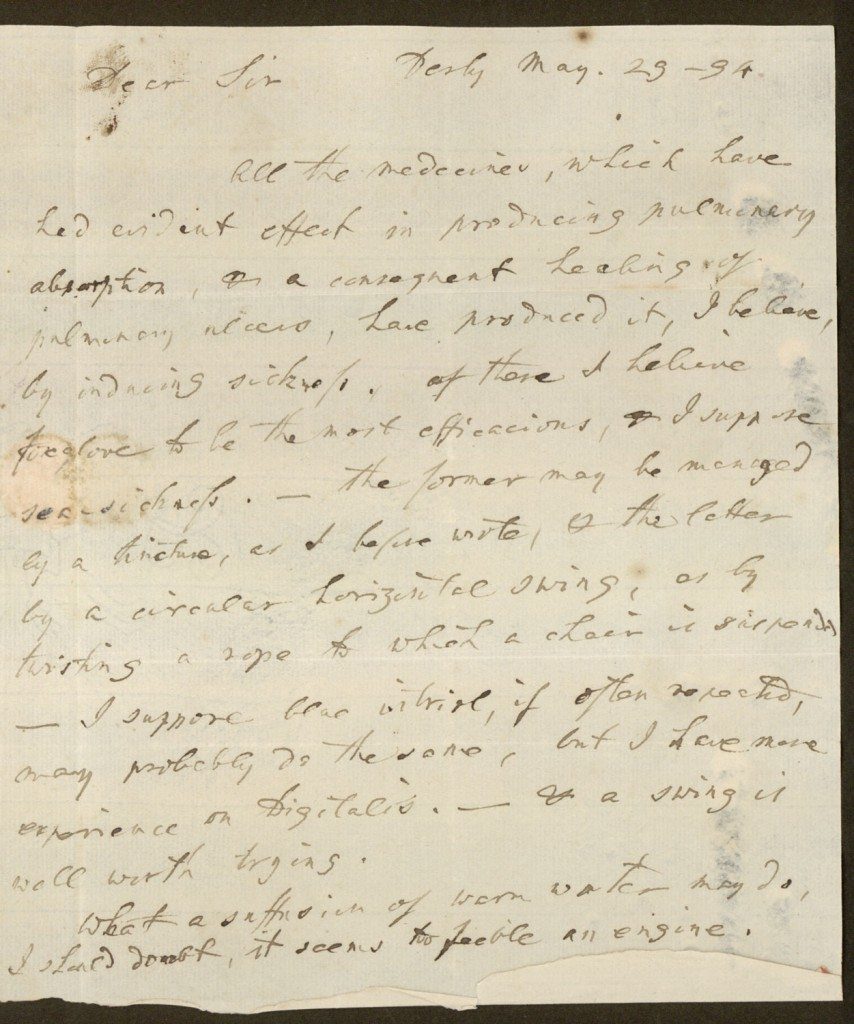 Dear Sir Derby May. 29 - 94.
All the medecines, which have
had evident effect in producing pulmonary
absorption, & a consequent healing of
pulmonary ulcers, have produced it, I believe,
by inducing sickness. of these I believe
foxglove to be the most efficacious, & I suppose
sea-sickness. — the former may be managed
by a tincture, as I before wrote, & the latter
by a circular horizontal swing, or by
twisting a rope to which a chair is suspended
— I suppose blue vitriol, if often repeated,
may probably do the same, but I have more
experience on Digitalis. — & a swing is
well worth trying.
What a suffusion of warm water may do,
I should doubt, it seems too feeble an engine.